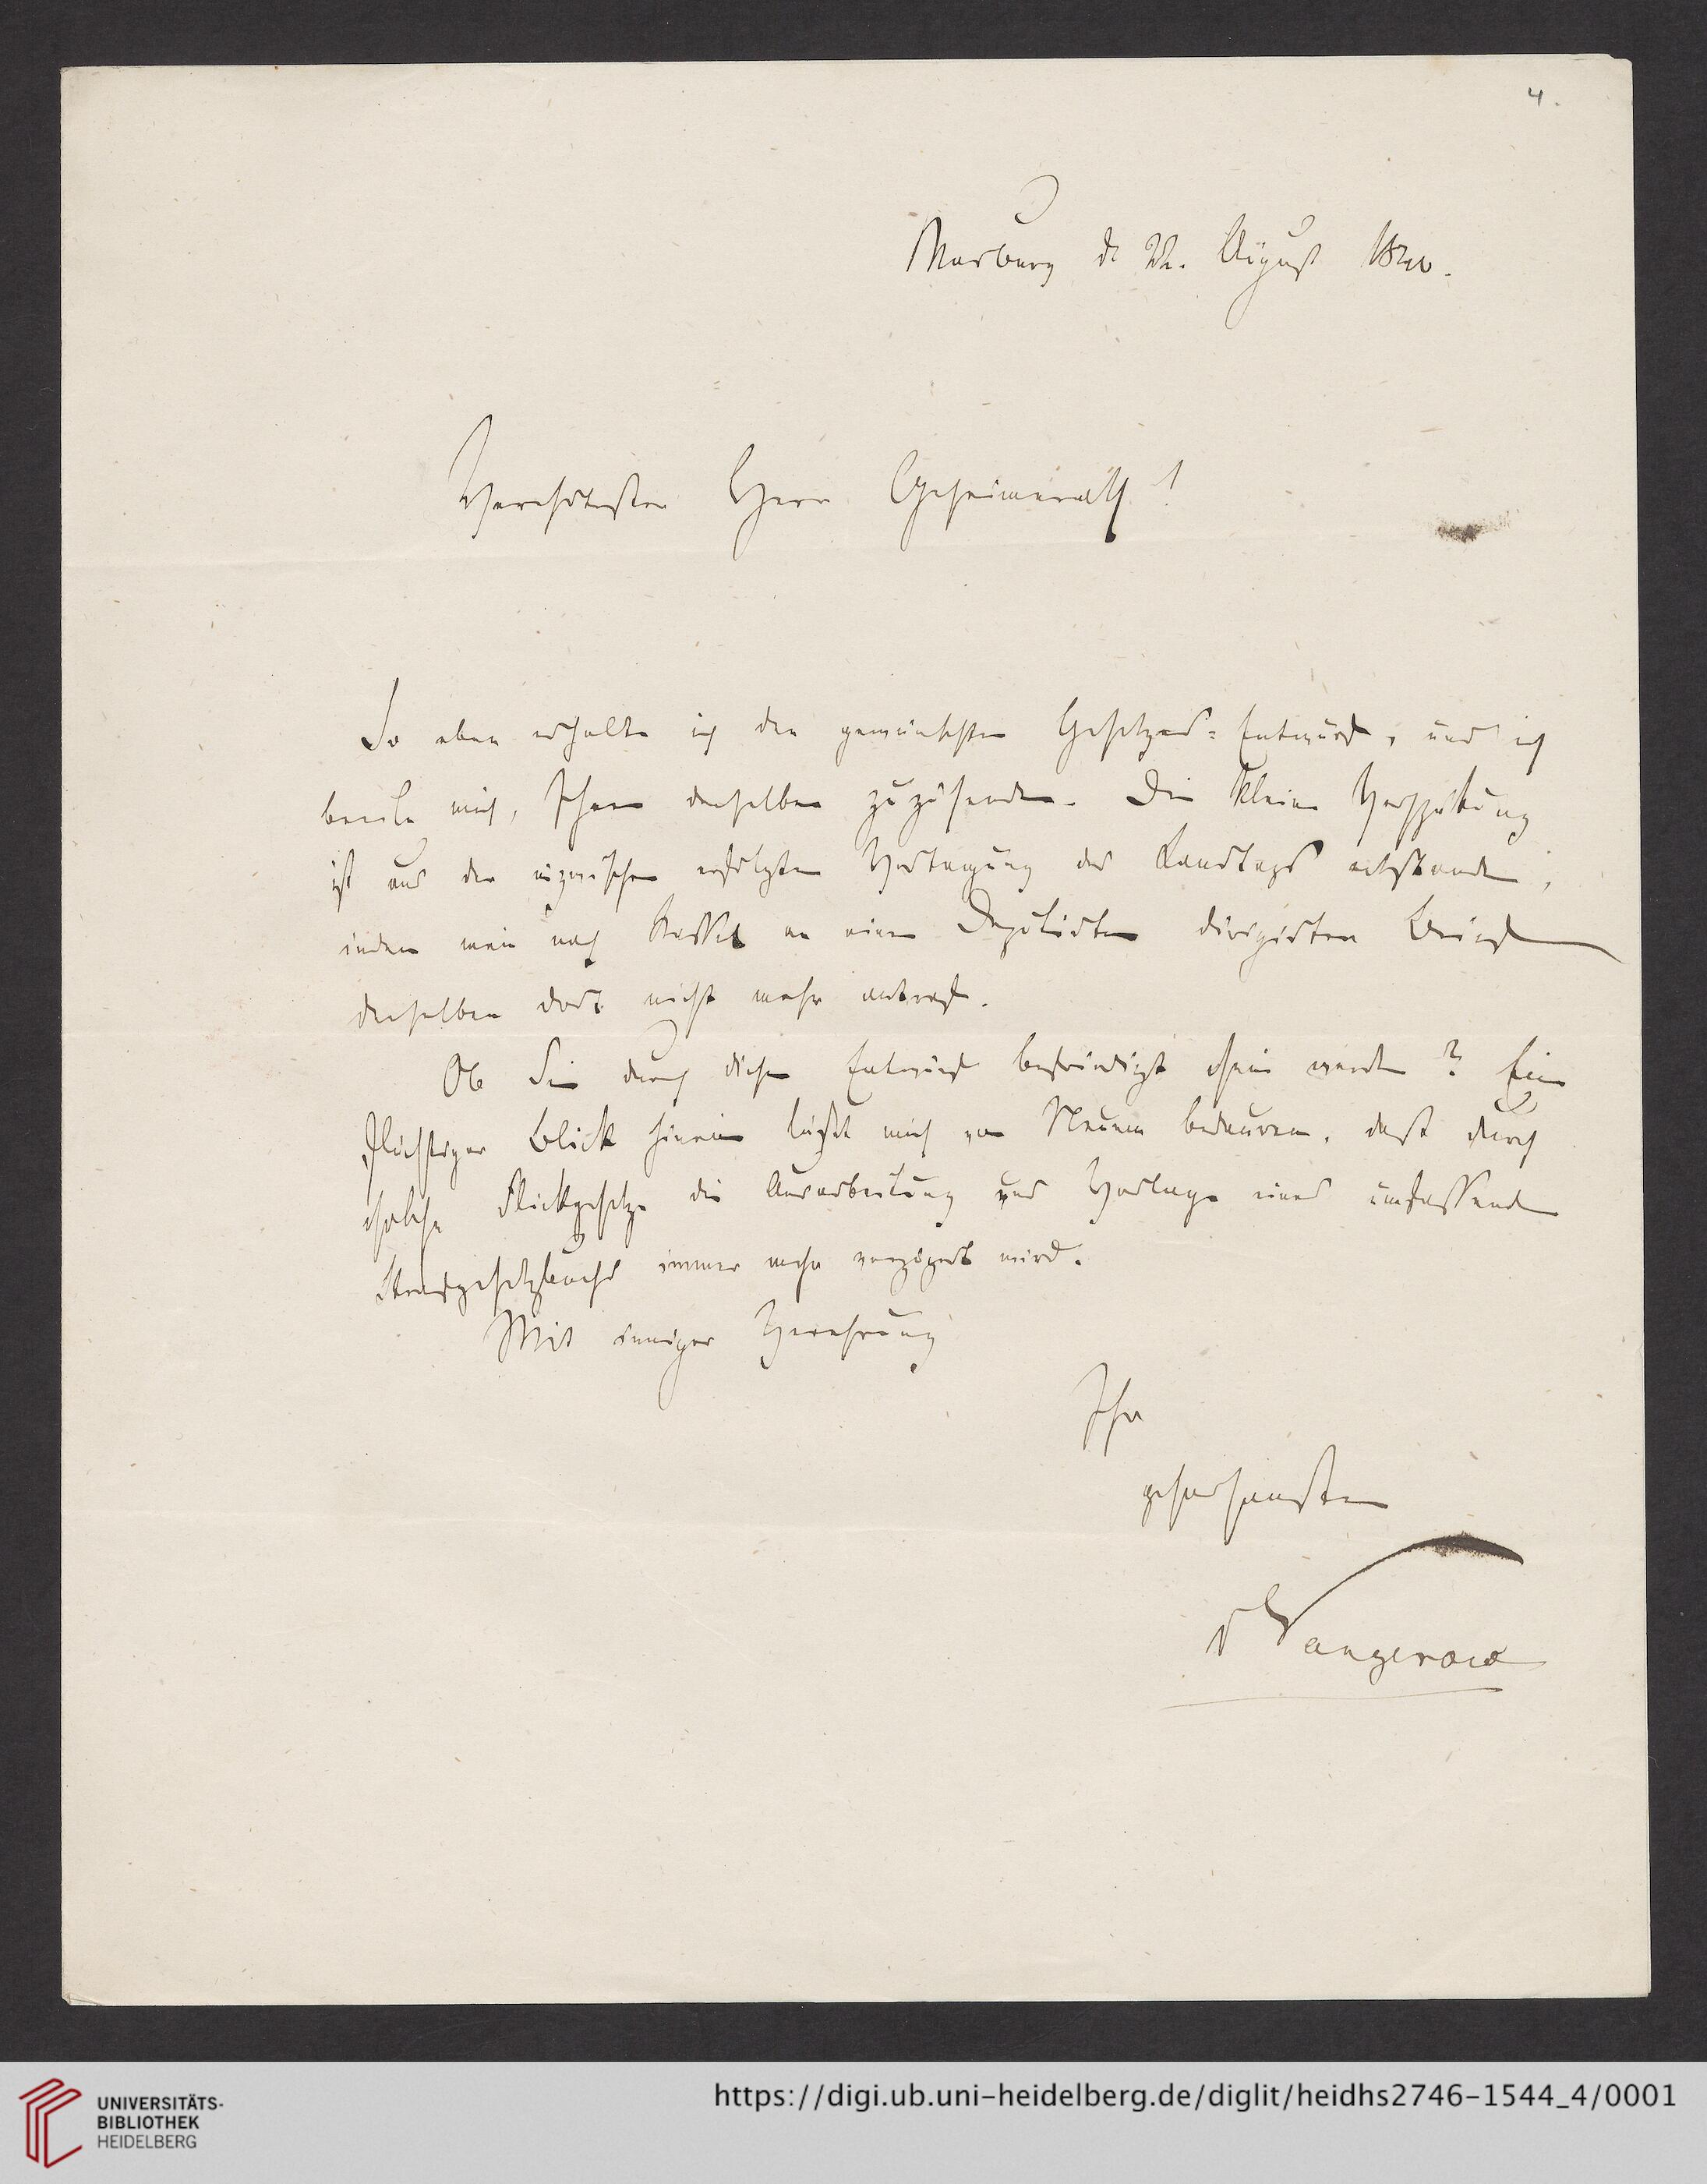 4.
Marburg d. 22. August 1840.
Verehrtester Herr Geheimerath!
So eben erhalte ich den gewünschten Gesetzes-Entwurf, und ich
beeile mich, Ihnen denselben zuzusenden. Die kleine Verspätung
ist aus der inzwischen erfolgten Vertagung des Landtags entstanden,
indem mein nach Kassel an einen Deputirten dirigirter Brief
denselben dort nicht mehr antraf.
Ob Sie durch diesen Entwurf befriedigt sein werden? Ein
flüchtiger Blick hinein läßt mich von Neuem bedauren, daß durch
solche Flickgesetze die Ausarbeitung und Vorlage eines umfassenden
Strafgesetzbuchs immer mehr verzögert wird.
Mit inniger Verehrung
Ihr
gehorsamster
v Vangerow
UNIVERSITÄTS-
BIBLIOTHEK
HEIDELBERG
https://digi.ub.uni-heidelberg.de/diglit/heidhs2746-1544_4/0001